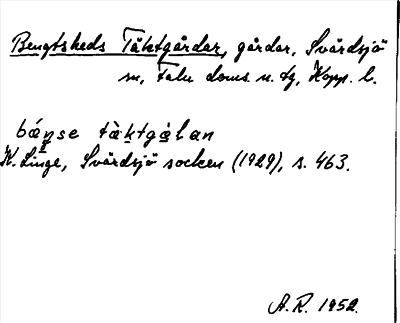 Bengtsheds Täktgårdar, gårdar, Svärdsjö
sn, Falu doms. n. tg, Kopp. l.
bάŋse tὰktgålan
K. Linge, Svärdsjö socken (1929), s. 463.
A. R. 1952.